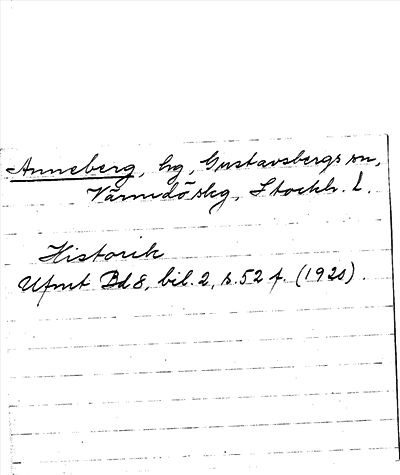 Anneberg, hg, Gustavsbergs sn,
Värmdö skg, Stockh. L.
Historik
Ufmt Bd 8, bil. 2, s. 52 f. (1920).